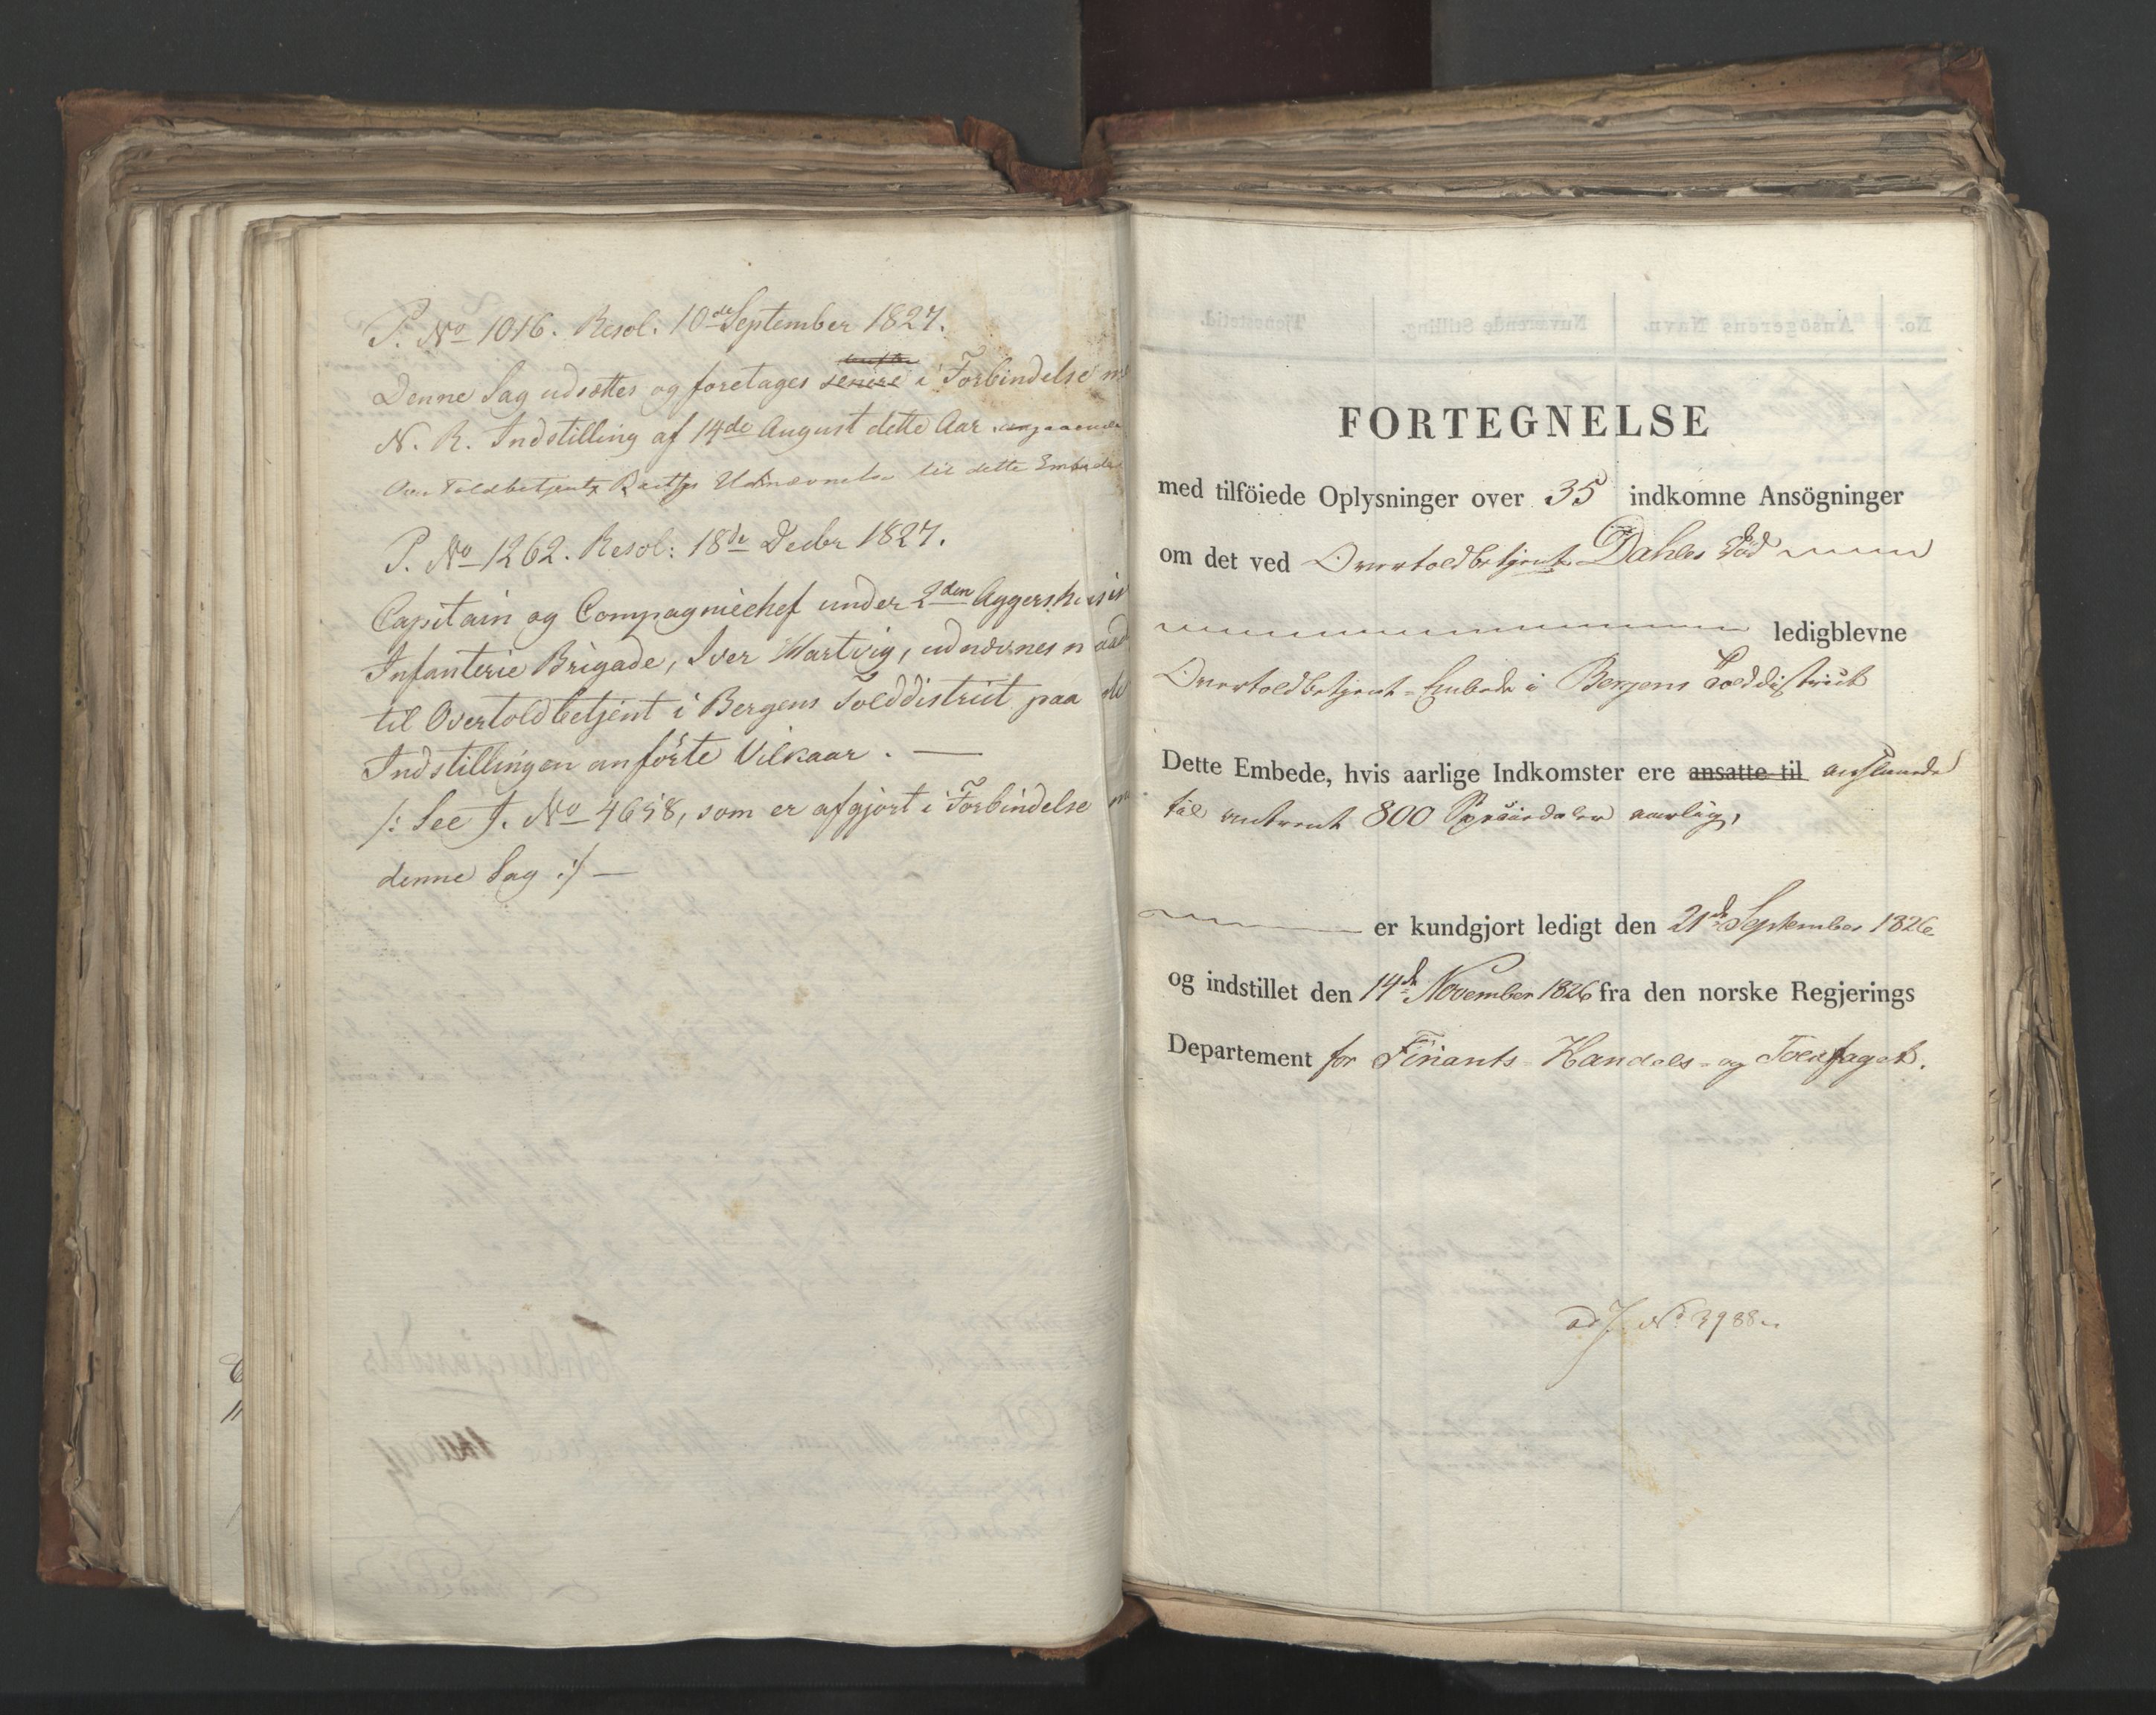 P. No 1016. Resol. 10de September 1827.
Denne Sag udsættes og foretages senere i Forbindelse m
N. R. Indstilling af 14de August dette Aar angaaende
Over Toldbetjent Udnævnelse til dette Embede
P. No 1262. Resol: 18de Decbr 1827.
Capitain og Compagniechef under 2den Aggershusis
Infanterie Brigade, Iver Hartvig, udnævnes n aad
til Overtoldbetjent i Bergens Tolddistrict paa de
Indstillingen anførte Vilkaar. —
/: See J. No 4658, som er afgjort i Forbindelse m
denne Sag :/ —
FORTEGNELSE
med tilföiede Oplysninger over 35 indkomne Ansögninger
om det ved Overtoldbetjent Dahls Död
ledigblevne
Overtoldbetjent-Embede i Bergens Tolddistrict
Dette Embede, hvis aarlige Indkomster ere ansatte til anslaaede
til omtrent 800 Speciedaler aarlig,
er kundgjort ledigt den 21de September 1826
og indstillet den 14de November 1826 fra den norske Regjerings
Departement for Finants- Handels- og Toldfaget.
ad J. No 3988